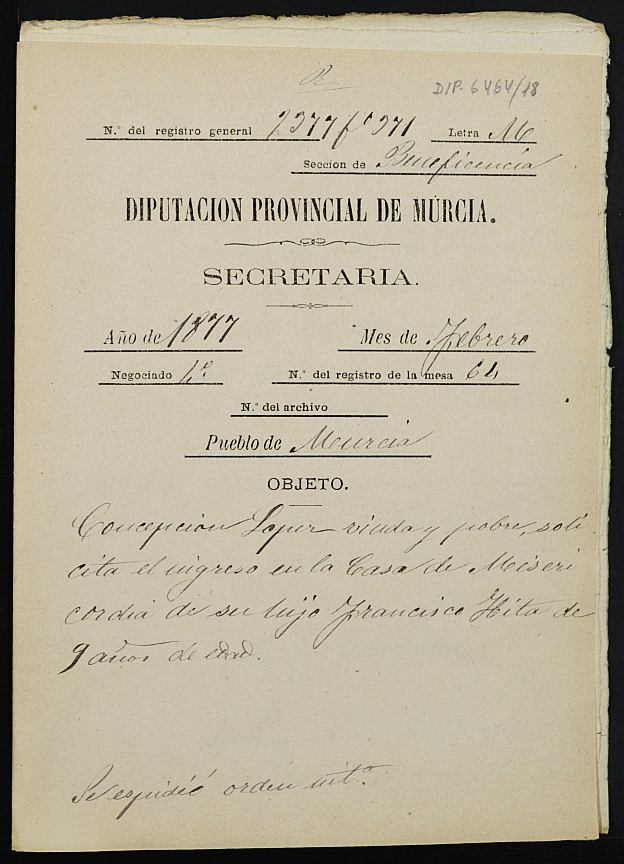 DIP. 6464/18
N.º del registro general 2377 fº 371 Letra M
Seccion de Beneficencia
DIPUTACION PROVINCIAL DE MURCIA.
SECRETARIA.
Año de 1877 Mes de Febrero
Negociado 1º N.º del registro de la mesa 64
N.º del archivo
Pueblo de Murcia
OBJETO.
Concepcion Lopez viuda y pobre, soli
cita el ingreso en la Casa de Miseri
cordia de su hijo Francisco Hita de
9 años de edad.
Se espidió orden